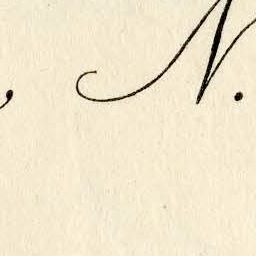 , N.